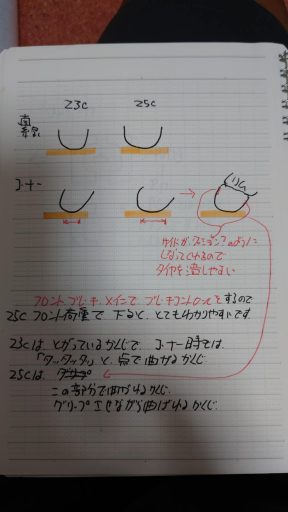 23c 25c
直線
コーナー
リム
サイドが、クッションのように
しなってくれるので
タイヤを潰しやすい
フロントブレーキ メインで ブレーキコントロールをするので
25c フロント荷重で 下ると、とてもわかりやすいです
23cは とがっているかんじで コーナー時では
「タッタッタッ」と 点で曲がるかんじ
25cは
この部分で曲がれるかんじ
グリップさせながら曲がれるかんじ